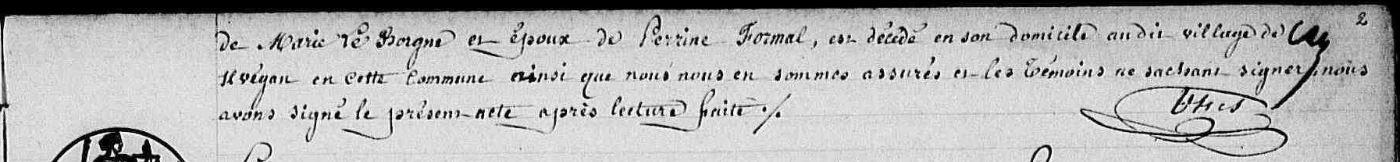 2
de Marie Le Borgne et époux de Perrine Formal, est décédé en son domicile au dit village de
Kvégan en cette commune ainsi que nous nous en sommes assurés et les témoins ne sachant signer, nous
avons signé le présent acte après lecture faite ./.